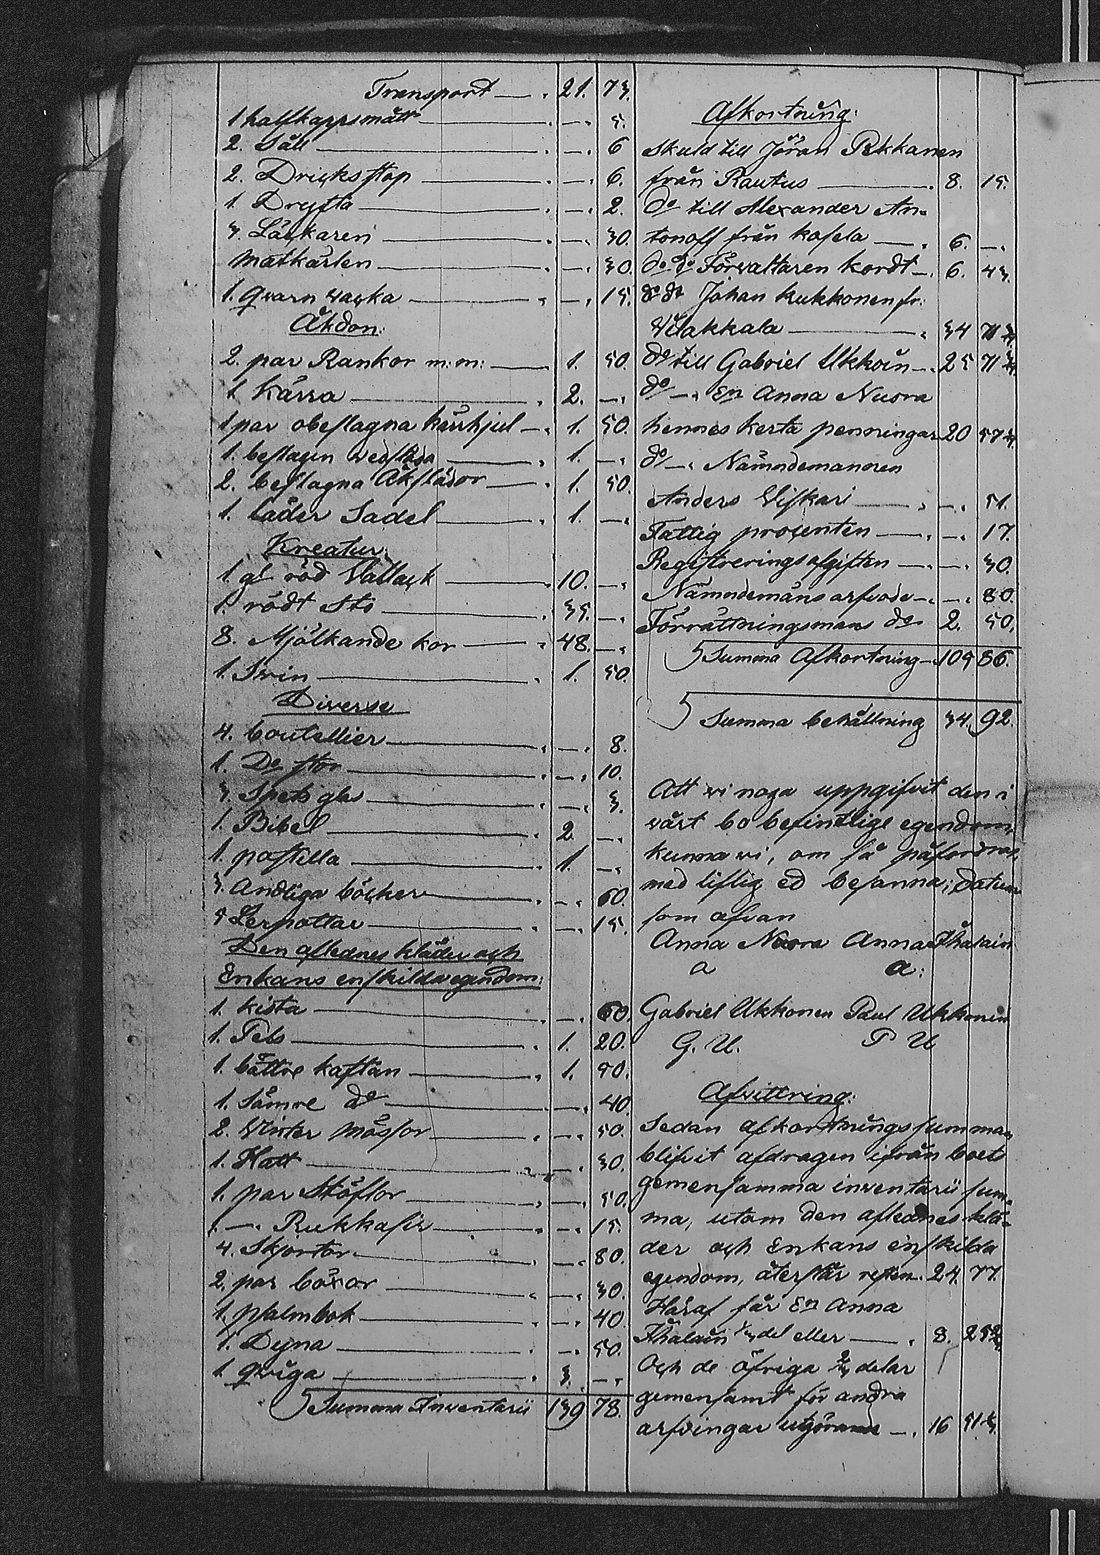 Transport — 21. 73.
1 halfkappsmått — " — 5.
2. Såll — " — 6
2. Dricksstop — " — 6.
1. Dryfta — " — 2.
3. Läskaren — " — 30.
Matkärlen — " — 30.
1. qvarn wacka — " — 15.
Åkdon:
2. par Rankor m:m: — 1. 50.
1. Kärra — 2. —
1 par obeslagna kärrhjul — 1. 50.
1. beslagen wedsläda — 1. —
2. beslagna Åkslädor — 1. 50.
1. läder Sadel — 1. —
Kreatur:
1. gl röd Vallack — 10. —
1. rödt Sto — 35. —
8. Mjölkande kor — 48. —
1. Swin — 1. 50.
Diverse
4. boutellier — " — 8.
1. Do stor — " — 10.
3. Spets glas — " — 3.
1. Bibel — 2 —
1. postilla — 1. —
3. Andliga böcker — " — 60.
5 Lerpottar — " — 15.
Den aflednes kläder och
Enkans enskilda egendom:
1. Kista — " — 60.
1. Pels — 1. 20.
1. bättre kaftan — 1. 50.
1. Sämre do — " — 40.
2. Winter mössor — " — 50.
1. Hatt — " — 30.
1. par Stöflor — " — 50.
1. — " Rukkasir — " — 15.
4. Skjortor — " — 80.
2. par böxor — " — 30.
1. psalmbok — " — 40.
1. Dyna — " — 50.
1. qviga — 3. —
Summa Inventarii 139 78.
Afkortning:
Skuld till Jöran Pekkanen
från Rautus — 8. 15.
do till Alexander An-
tonoff från kasela — 6. —
do do Förvaltaren Kordt — 6. 43.
do do Johan Kukkonen fr:
Wilakkala — 34 71
do till Gabriel Ukkoin — 25 71
do — " En Anna Nuora
hennes kerta penningar 20 57
do — " Nämndemannen
Anders Wiskari — " — 51.
Fattig procenten — " — 17.
Registreringsafgiften — " — 30.
Nämndemans arfvode — " — 80.
Förrättningsmans do 2. 50.
Summa Afkortning 104 86.
Summa behållning 34. 92.
Att vi noga uppgifvit den i
vårt bo befintlige egendom,
kunna vi, om så påfordras,
med liflig ed besanna; Datum
som ofvan
Anna Nuora Anna Thalain
a a:
Gabriel Ukkonen Paul Ukkonen
G. U. P U
Afvittring:
Sedan afkortnings summan
blifvit afdragen ifrån boets
gemensamma inventarii sum-
ma, utom den aflednes klä-
der och Enkans enskilda
egendom, återstår resten. 24. 77.
Häraf får En Anna
Thalain 1/3 del eller — 8. 25
Och de öfriga 2/3 delar
gemensamt för andra
arfvingar utgörande — 16 51